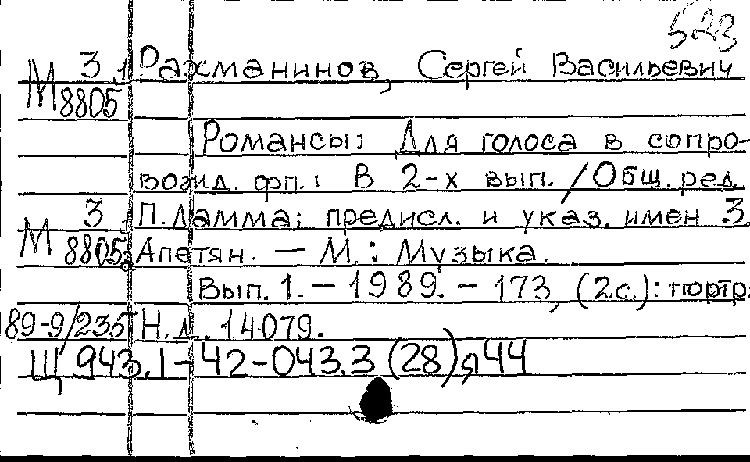 523
М З.1 Рахманинов, Сергей Васильевич
8805
Романсы: Для голоса в сопро-
вожд. фп.: В 2-х вып. / Общ. ред.
З.1 П. Ламма; предисл. и указ. имен З.
М 8805 Апетян. — М.: Музыка.
Вып. 1. — 1989. — 173, (2с.): портр.
89-9/235 Н.д. 14079.
Щ 943.1-42-043.3(28)я44